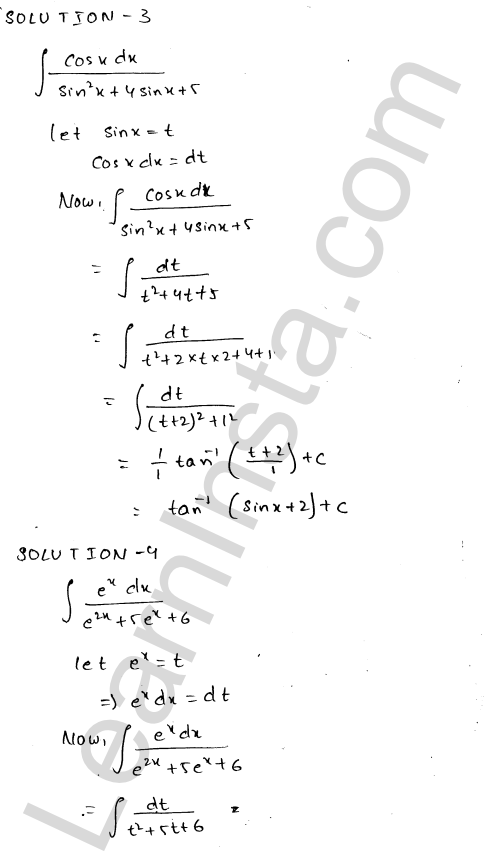 SOLUTION - 3
∫ cos x dx / sin²x + 4 sin x + 5
let sin x = t
cos x dx = dt
Now, ∫ cos x dx / sin²x + 4 sin x + 5
= ∫ dt / t² + 4t + 5
= ∫ dt / t² + 2 × t × 2 + 4 + 1
= ∫ dt / (t+2)² + 1²
= 1/1 tan⁻¹ (t+2 / 1) + C
= tan⁻¹ (sin x + 2) + C
SOLUTION - 4
∫ eˣ dx / e²ˣ + 5eˣ + 6
let eˣ = t
=> eˣ dx = dt
Now, ∫ eˣ dx / e²ˣ + 5eˣ + 6
= ∫ dt / t² + 5t + 6
LearnInsta.com